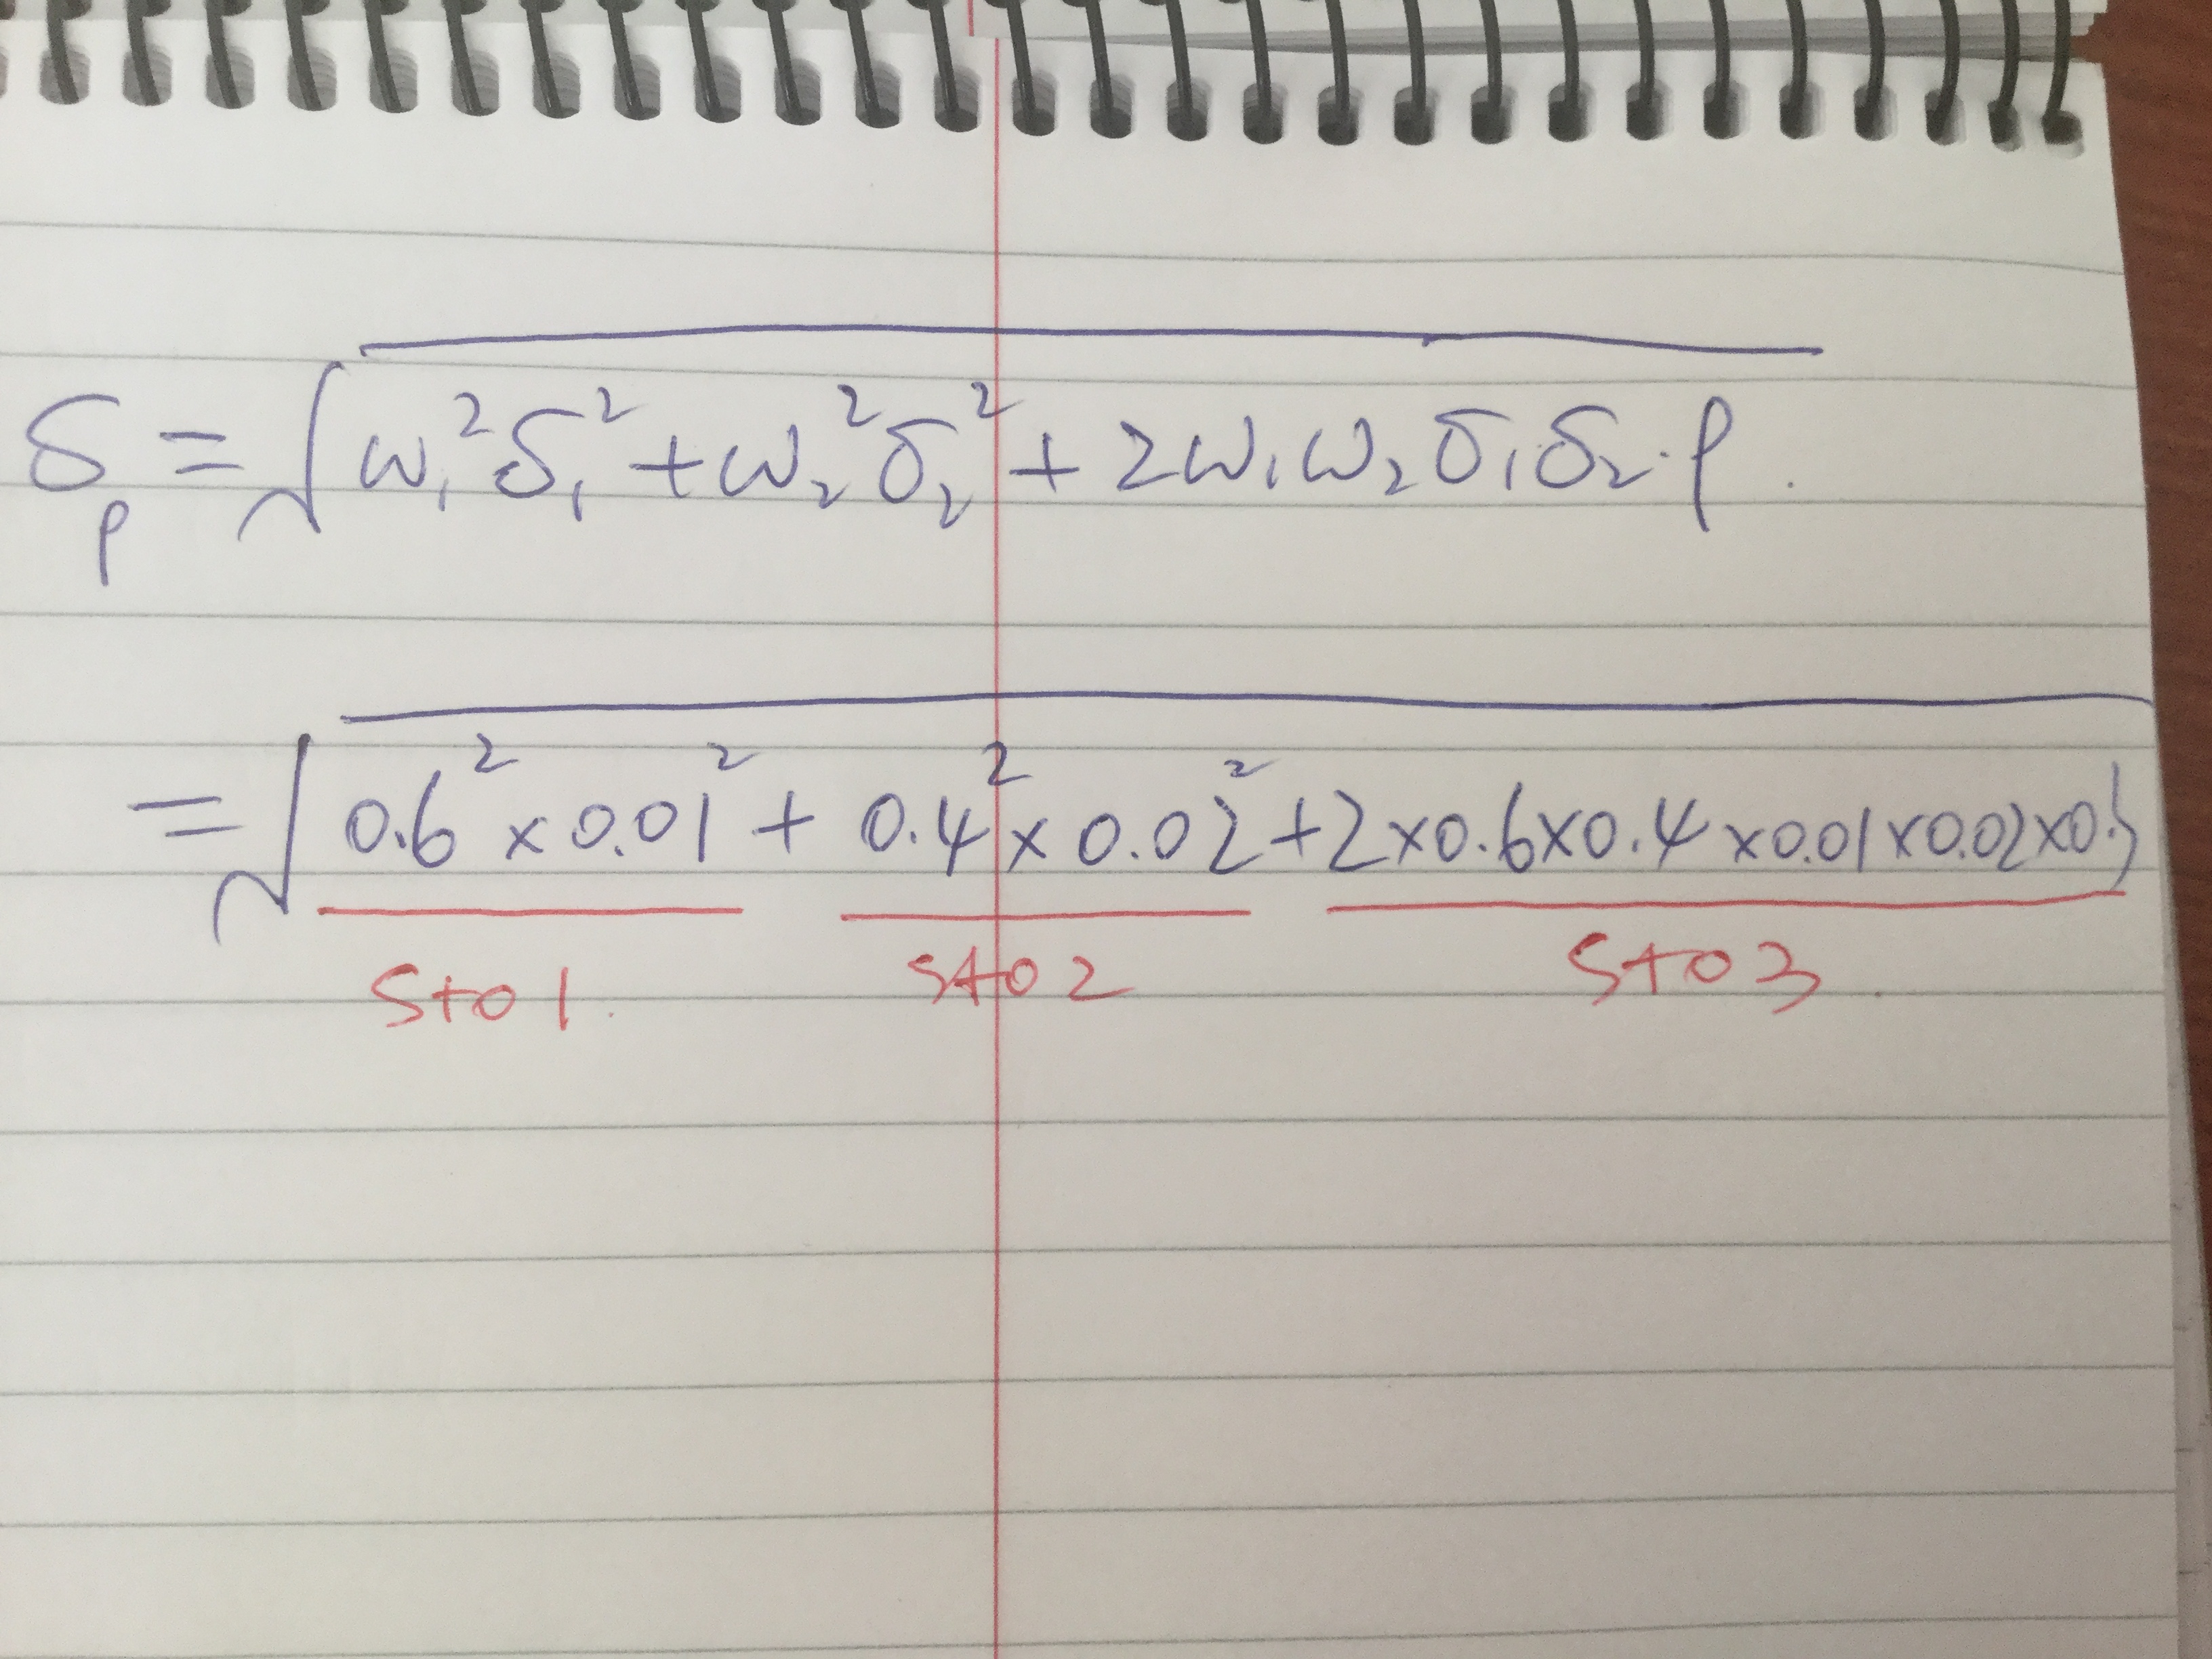 δₚ = √(ω₁²δ₁² + ω₂²δ₂² + 2ω₁ω₂δ₁δ₂·ρ)
= √(0.6² × 0.01² + 0.4² × 0.02² + 2×0.6×0.4×0.01×0.02×0.5)
sto 1. sto 2 sto 3